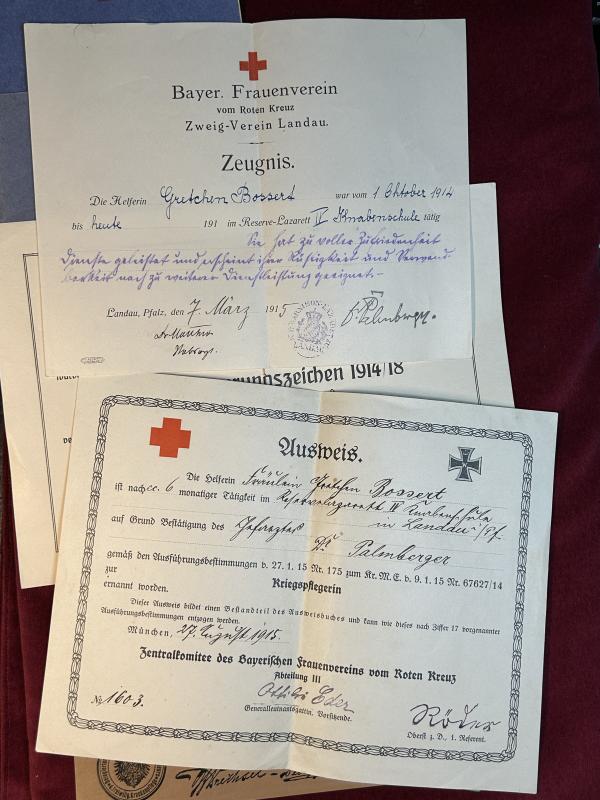 Bayer. Frauenverein
vom Roten Kreuz
Zweig-Verein Landau.
Zeugnis.
Die Helferin Gretchen Bossert war vom 1 Oktober 1914
bis heute 191 im Reserve-Lazarett IV Knabenschule tätig
Sie hat zu voller Zufriedenheit
Dienste geleistet und erscheint ihrer Rüstigkeit und Verwend
barkeit nach zu weiterer Dienstleistung geeignet.-
Landau, Pfalz, den 7 März 1915
Palmberger.
rungszeichen 1914/18
Ausweis.
Die Helferin Fräulein Gretchen Bossert
ist nach cc. 6 monatiger Tätigkeit im Reservelazarett IV Knabenschule
in Landau i/Pf.
auf Grund Bestätigung des Chefarztes
Dr Palmberger
gemäß den Ausführungsbestimmungen v. 27. 1. 15 Nr. 175 zum Kr. M. E. v. 9. 1. 15 Nr. 67627/14
zur Kriegspflegerin
ernannt worden.
Dieser Ausweis bildet einen Bestandteil des Ausweisbuches und kann wie dieses nach Ziffer 17 vorgenannter
Ausführungsbestimmungen entzogen werden.
München, 27. August 1915.
Zentralkomitee des Bayerischen Frauenvereins vom Roten Kreuz
Abteilung III
Ottilie Eder
Generalleutnantsgattin, Vorsitzende.
Röder
Oberst z. D., 1. Referent.
№ 1603.